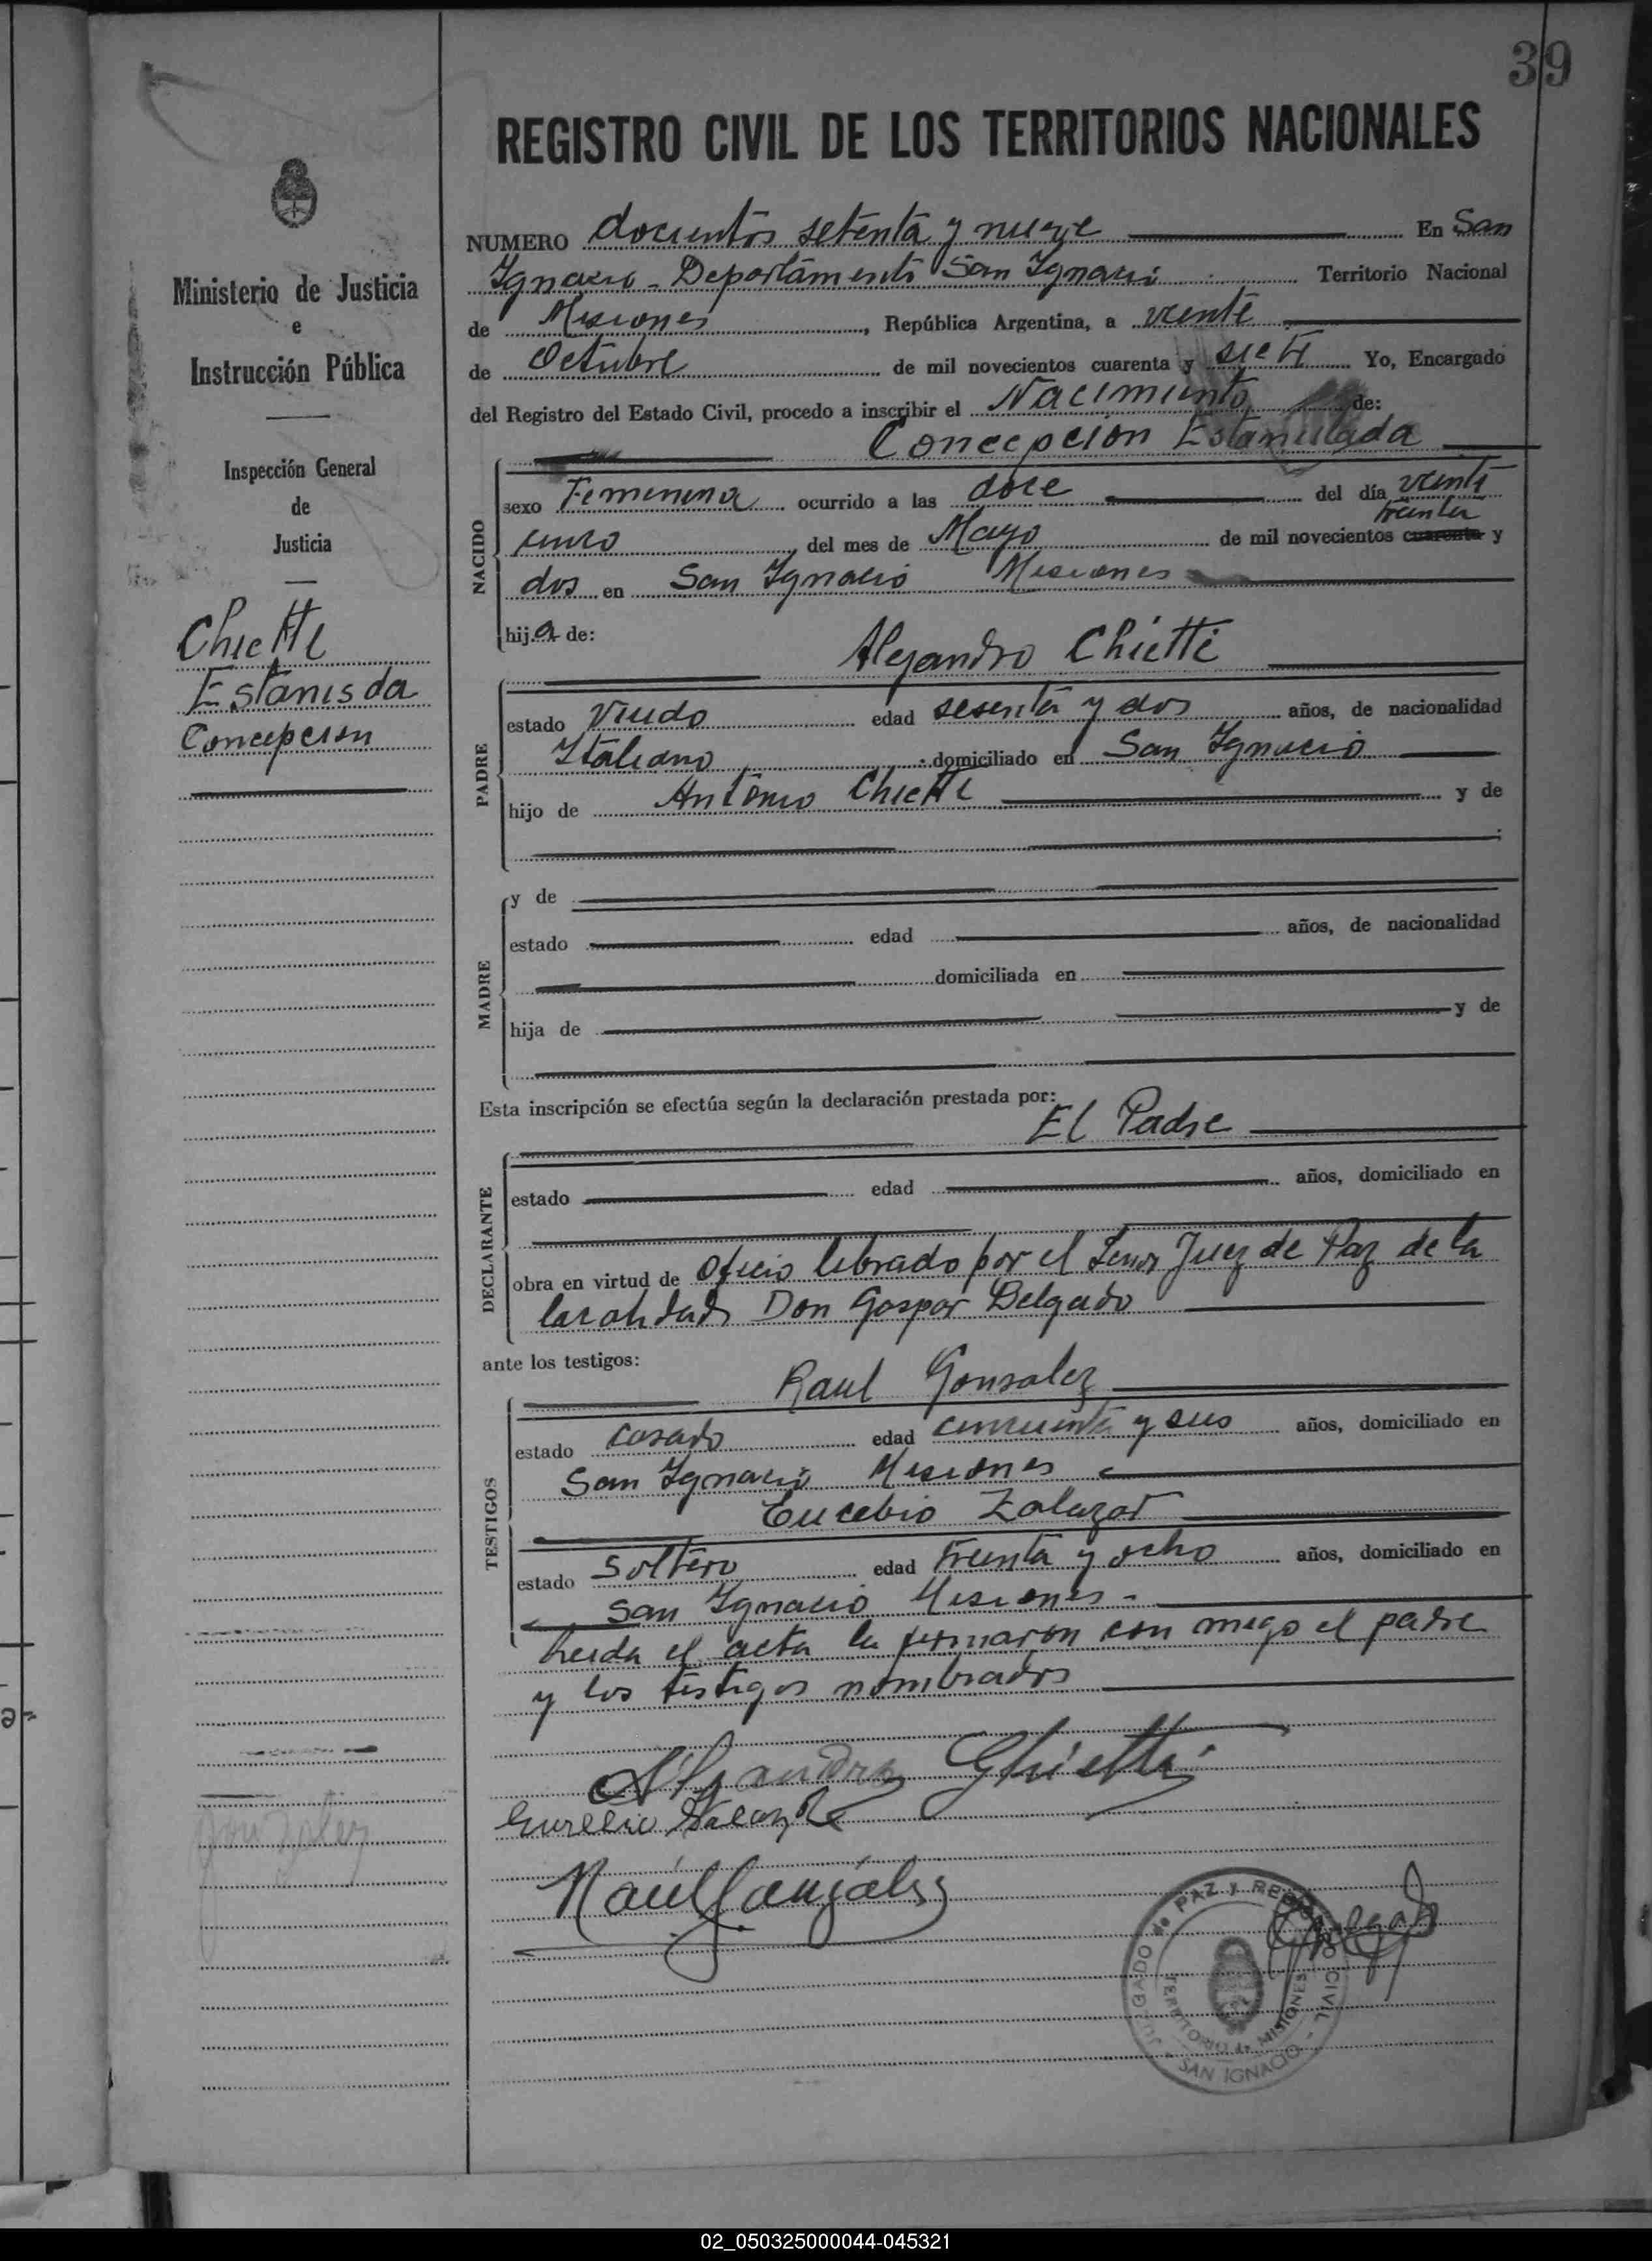 39
REGISTRO CIVIL DE LOS TERRITORIOS NACIONALES
Ministerio de Justicia
e
Instrucción Pública
Inspección General
de
Justicia
Chietti
Estanisda
Concepcion
NUMERO docientos setenta y nueve En San
Ignacio - Departamento San Ignacio Territorio Nacional
de Misiones, República Argentina, a veinte
de Octubre de mil novecientos cuarenta y siete Yo, Encargado
del Registro del Estado Civil, procedo a inscribir el Nacimiento de:
Concepcion Estanislada
NACIDO
sexo Femenina ocurrido a las doce del día veinti
treinta
cinco del mes de Mayo de mil novecientos cuarenta y
dos en San Ignacio Misiones
hija de:
Alejandro Chietti
PADRE
estado Viudo edad sesenta y dos años, de nacionalidad
Italiano domiciliado en San Ignacio
hijo de Antonio Chietti y de
MADRE
y de
estado edad años, de nacionalidad
domiciliada en
hija de y de
Esta inscripción se efectúa según la declaración prestada por:
El Padre
DECLARANTE
estado edad años, domiciliado en
obra en virtud de Oficio librado por el Señor Juez de Paz de la
localidad Don Gaspar Delgado
ante los testigos:
Raul Gonsalez
TESTIGOS
estado casado edad cincuenta y seis años, domiciliado en
San Ignacio Misiones
Eucebio Zalazar
estado Soltero edad treinta y ocho años, domiciliado en
San Ignacio Misiones -
Leida el acta la firmaron con migo el padre
y los testigos nombrados
Alejandro Ghietti
Raúl Gonzáles
JUZGADO de PAZ y REGISTRO CIVIL
TERRITORIO de MISIONES
SAN IGNACIO
02_050325000044-045321